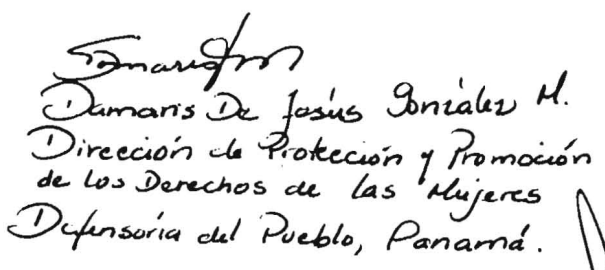 Damaris De Jesús González M.
Dirección de Protección y Promoción
de los Derechos de las Mujeres
Defensoría del Pueblo, Panamá.